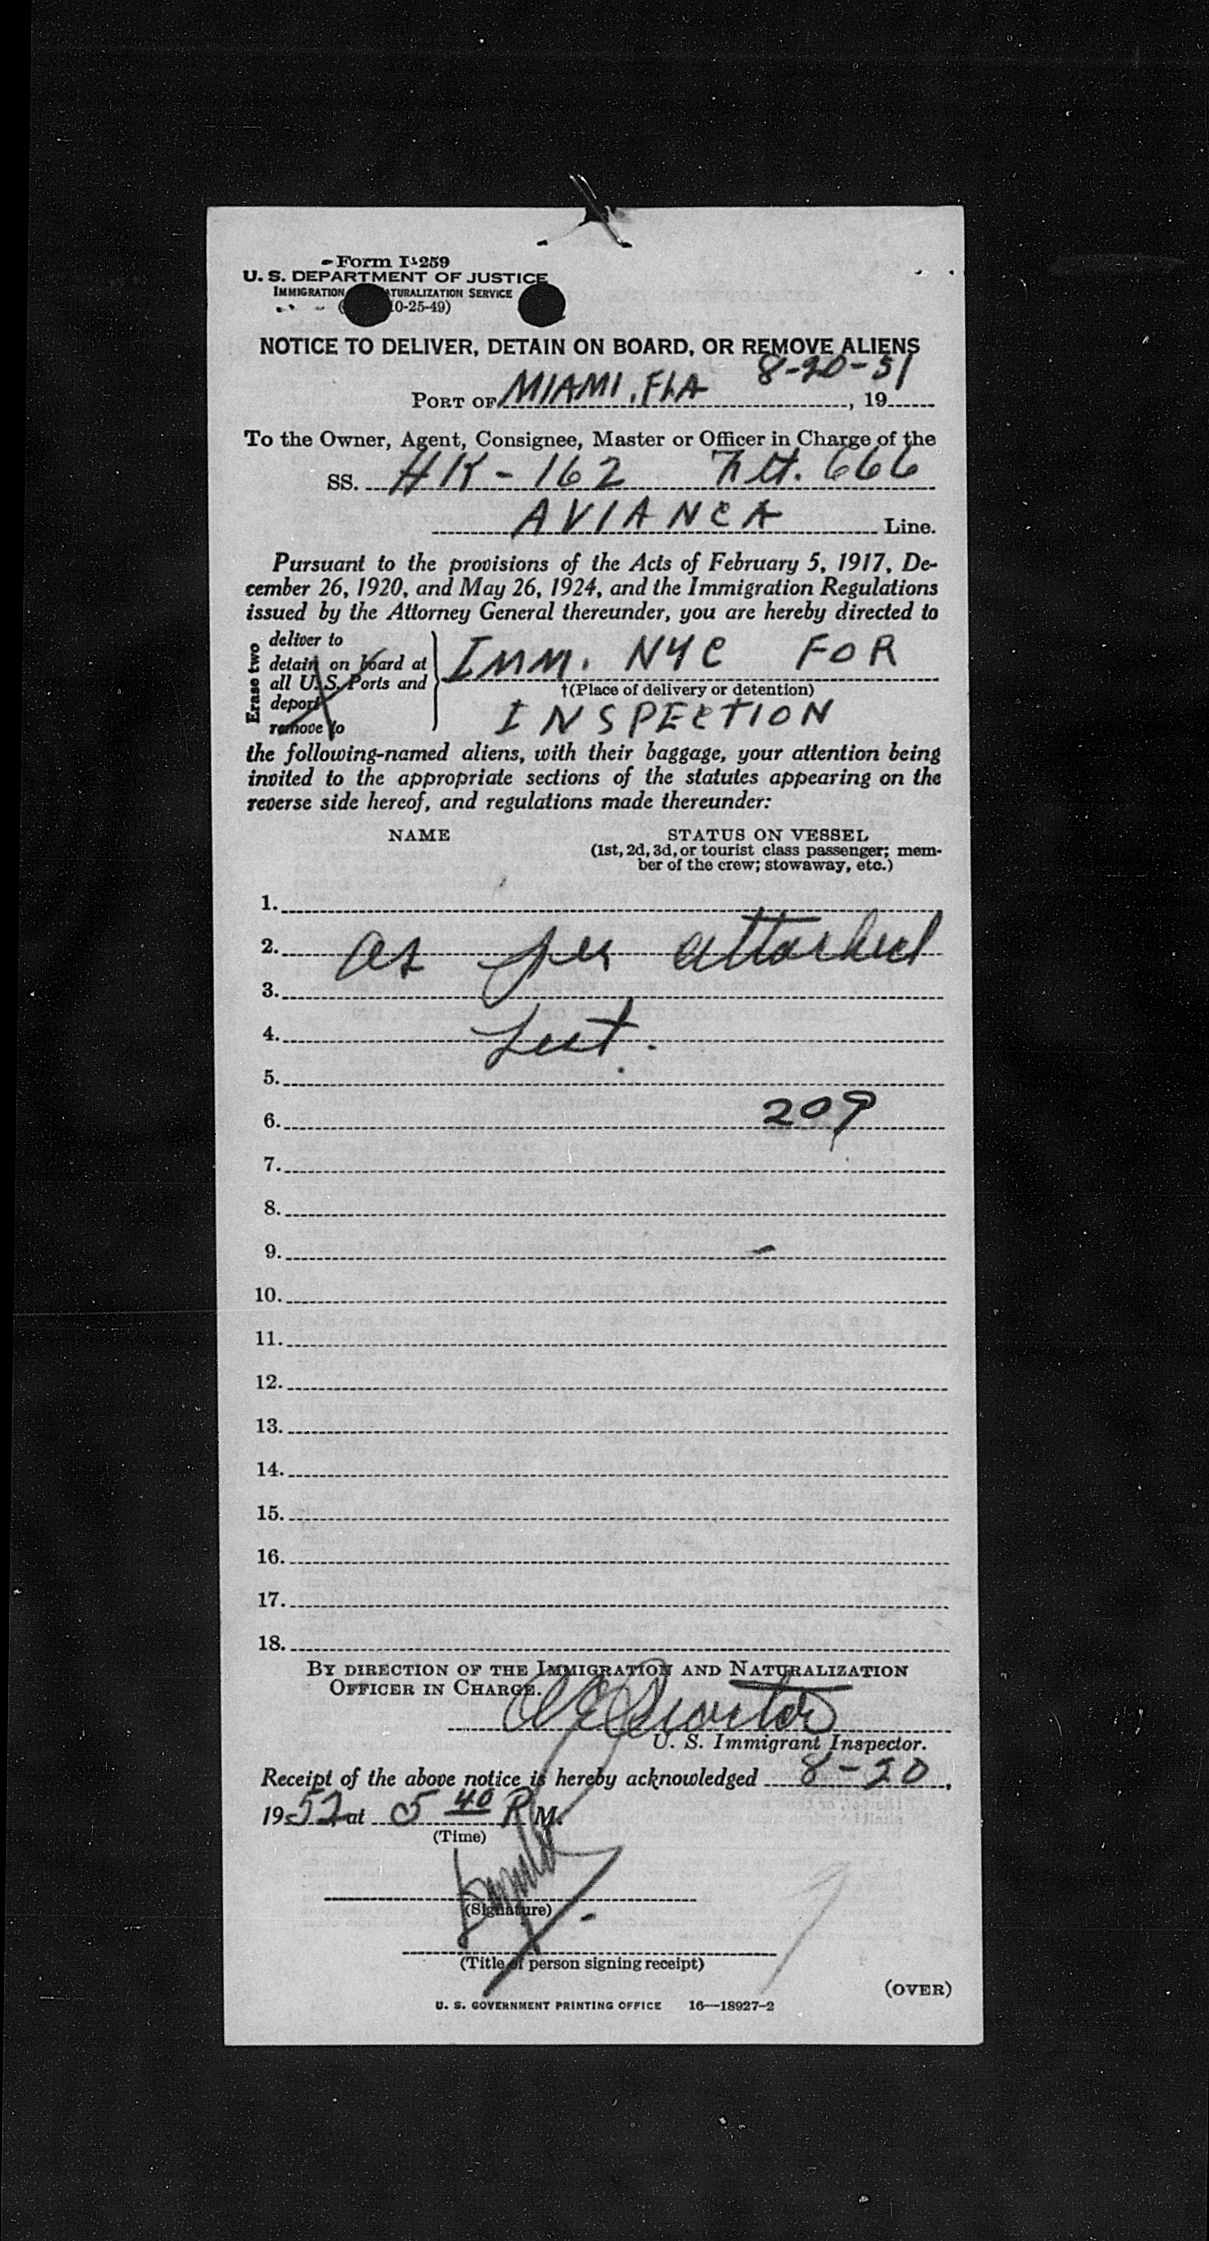 Form I-259
U. S. DEPARTMENT OF JUSTICE
IMMIGRATION NATURALIZATION SERVICE
0-25-49)
NOTICE TO DELIVER, DETAIN ON BOARD, OR REMOVE ALIENS
8-20-51
PORT OF MIAMI, FLA , 19
To the Owner, Agent, Consignee, Master or Officer in Charge of the
SS. HK-162 Flt. 666
AVIANCA Line.
Pursuant to the provisions of the Acts of February 5, 1917, De-
cember 26, 1920, and May 26, 1924, and the Immigration Regulations
issued by the Attorney General thereunder, you are hereby directed to
Erase two
deliver to
detain on board at
all U. S. Ports and
deport
remove to
Imm. NYC FOR
†(Place of delivery or detention)
INSPECTION
the following-named aliens, with their baggage, your attention being
invited to the appropriate sections of the statutes appearing on the
reverse side hereof, and regulations made thereunder:
NAME STATUS ON VESSEL
(1st, 2d, 3d, or tourist class passenger; mem-
ber of the crew; stowaway, etc.)
1.
2. as per attached
3.
4. List.
5.
6. 209
7.
8.
9.
10.
11.
12.
13.
14.
15.
16.
17.
18.
BY DIRECTION OF THE IMMIGRATION AND NATURALIZATION
OFFICER IN CHARGE.
U. S. Immigrant Inspector.
Receipt of the above notice is hereby acknowledged 8-20,
1952 at 5 40 P M.
(Time)
(Signature)
(Title of person signing receipt)
(OVER)
U. S. GOVERNMENT PRINTING OFFICE 16—18927-2